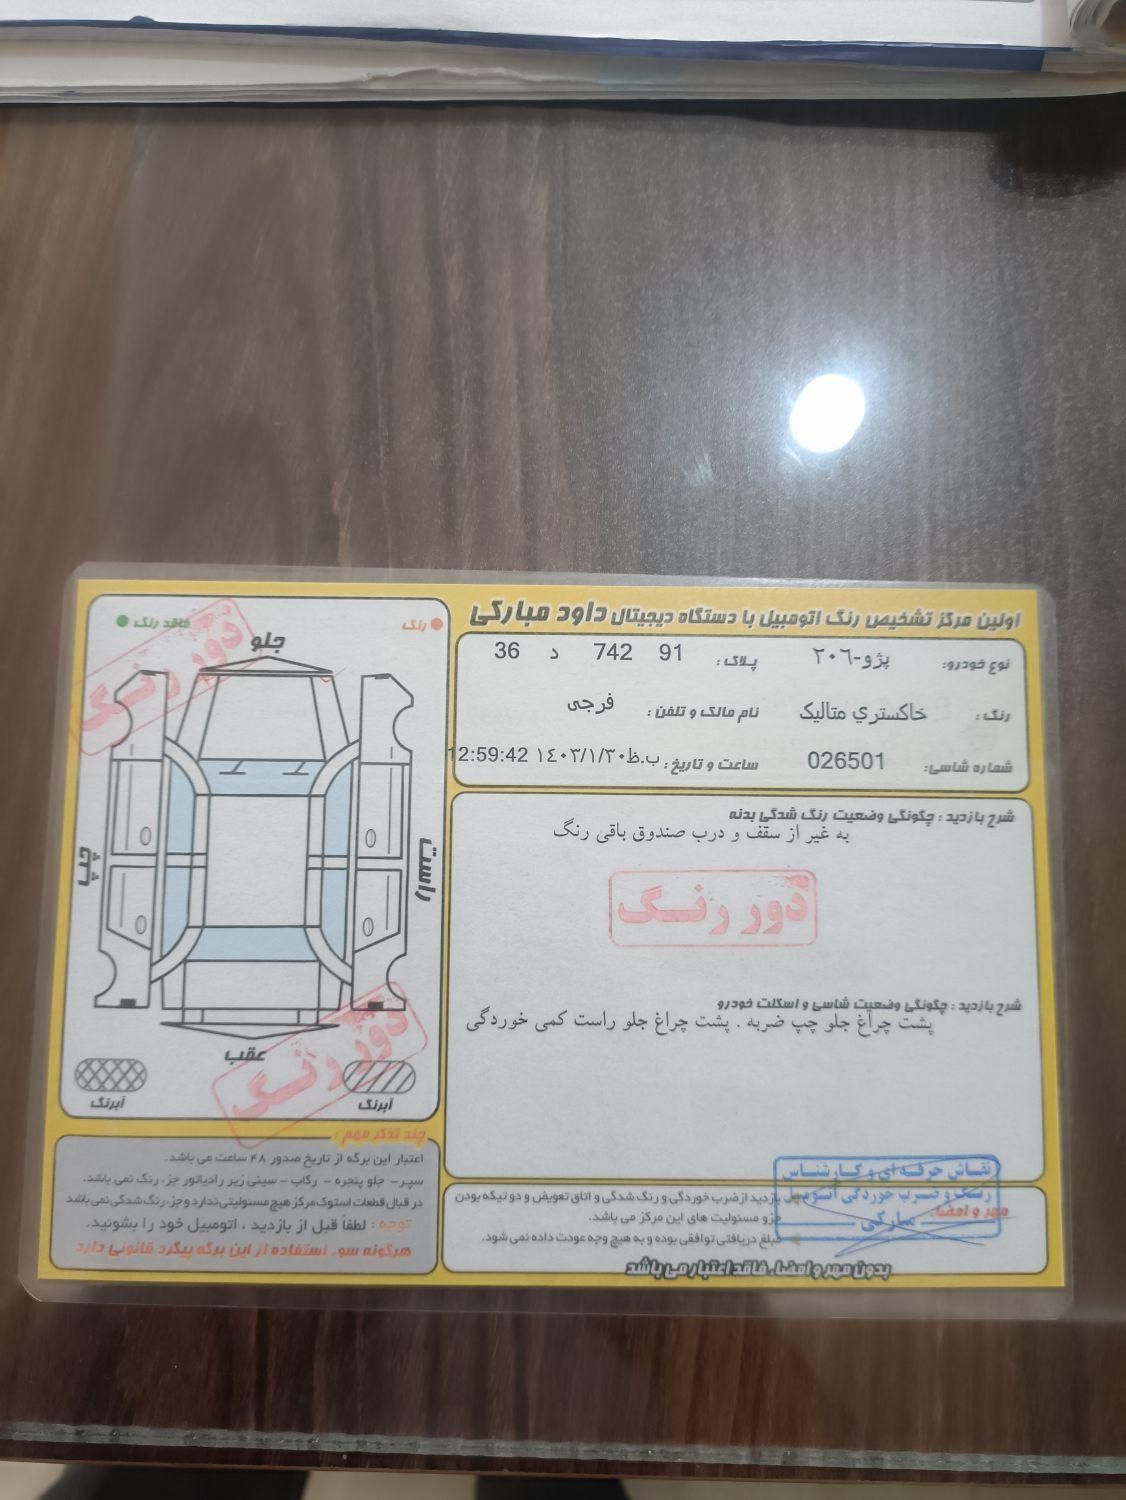 اولین مرکز تشخیص رنگ اتومبیل با دستگاه دیجیتال داود مبارکی
نوع خودرو: پژو-٢٠٦ پلاک: 91 742 د 36
رنگ: خاکستري متالیک نام مالک و تلفن: فرجی
شماره شاسی: 026501 ساعت و تاریخ: ١٤٠٣/١/٣٠ب.ظ 12:59:42
شرح بازدید: چگونگی وضعیت رنگ شدگی بدنه
به غیر از سقف و درب صندوق باقی رنگ
دور رنگ
شرح بازدید: چگونگی وضعیت شاسی و اسکلت خودرو
پشت چراغ جلو چپ ضربه . پشت چراغ جلو راست کمی خوردگی
بازدید از ضرب خوردگی و رنگ شدگی و اتاق تعویض و دو تیکه بودن
جزو مسئولیت های این مرکز می باشد.
مبلغ دریافتی توافقی بوده و به هیچ وجه عودت داده نمی شود.
مهر و امضا:
نقاش حرفه ای و کارشناس
رنگ و ضرب خوردگی اتومبیل
مبارکی
بدون مهر و امضا، فاقد اعتبار می باشد
رنگ
فاقد رنگ
دور رنگ
جلو
راست
چپ
عقب
دور رنگ
آبرنگ
آبرنگ
چند تذکر مهم:
اعتبار این برگه از تاریخ صدور ۴۸ ساعت می باشد.
سپر - جلو پنجره - رکاب - سینی زیر رادیاتور جزء رنگ نمی باشد.
در قبال قطعات استوک مرکز هیچ مسئولیتی ندارد و جزء رنگ شدگی نمی باشد
توجه: لطفاً قبل از بازدید، اتومبیل خود را بشوئید.
هرگونه سوء استفاده از این برگه پیگرد قانونی دارد